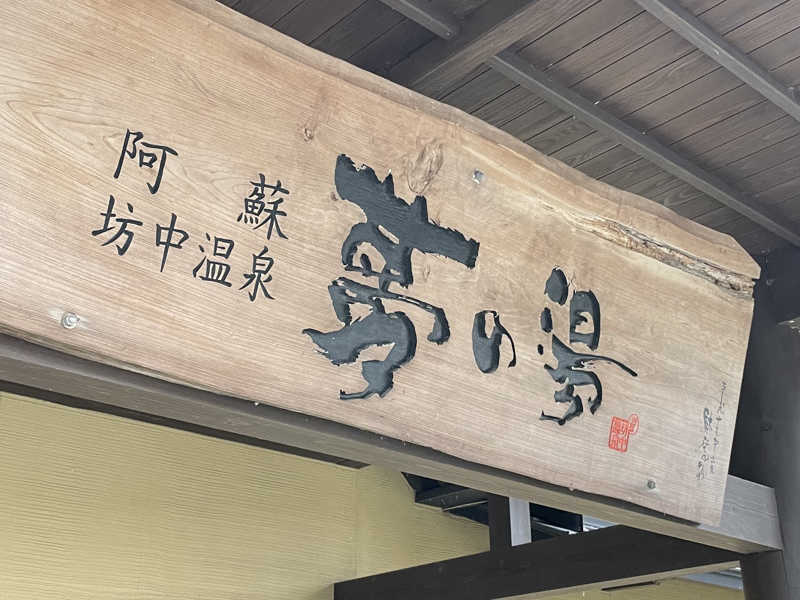 阿蘇
坊中温泉
夢の湯